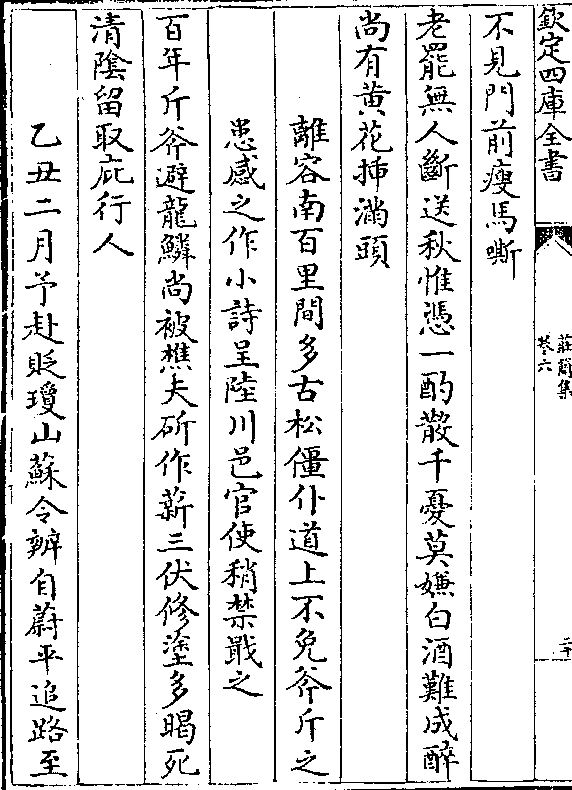 欽定四庫全書
莊簡集
卷六
二十
不見門前瘦馬嘶
老罷無人斷送秋惟憑一酌散千憂莫嫌白酒難成醉
尚有黄花揷滿頭
離容南百里間多古松僵仆道上不免斧斤之
患感之作小詩呈陸川邑官使稍禁戢之
百年斤斧避龍鱗尚被樵夫斫作薪三伏修塗多暍死
清陰留取庇行人
乙丑二月予赴貶瓊山蘇令辧自蔚平追路至